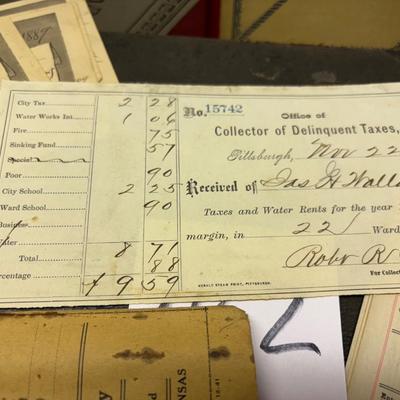 1887
City Tax 2 28
Water Works Int 1 06
Fire 75
Sinking Fund 57
Special
Poor 90
City School 2 25
Ward School 90
Business
Water
Total 8 71
88
Percentage 9 59
No. 15742
Office of
Collector of Delinquent Taxes,
Pittsburgh, Nov 22
Received of Jas H Walla
Taxes and Water Rents for the year
margin, in 22 Ward
Robt R
For Collec
HERALD STEAM PRINT, PITTSBURGH.
2
NSAS